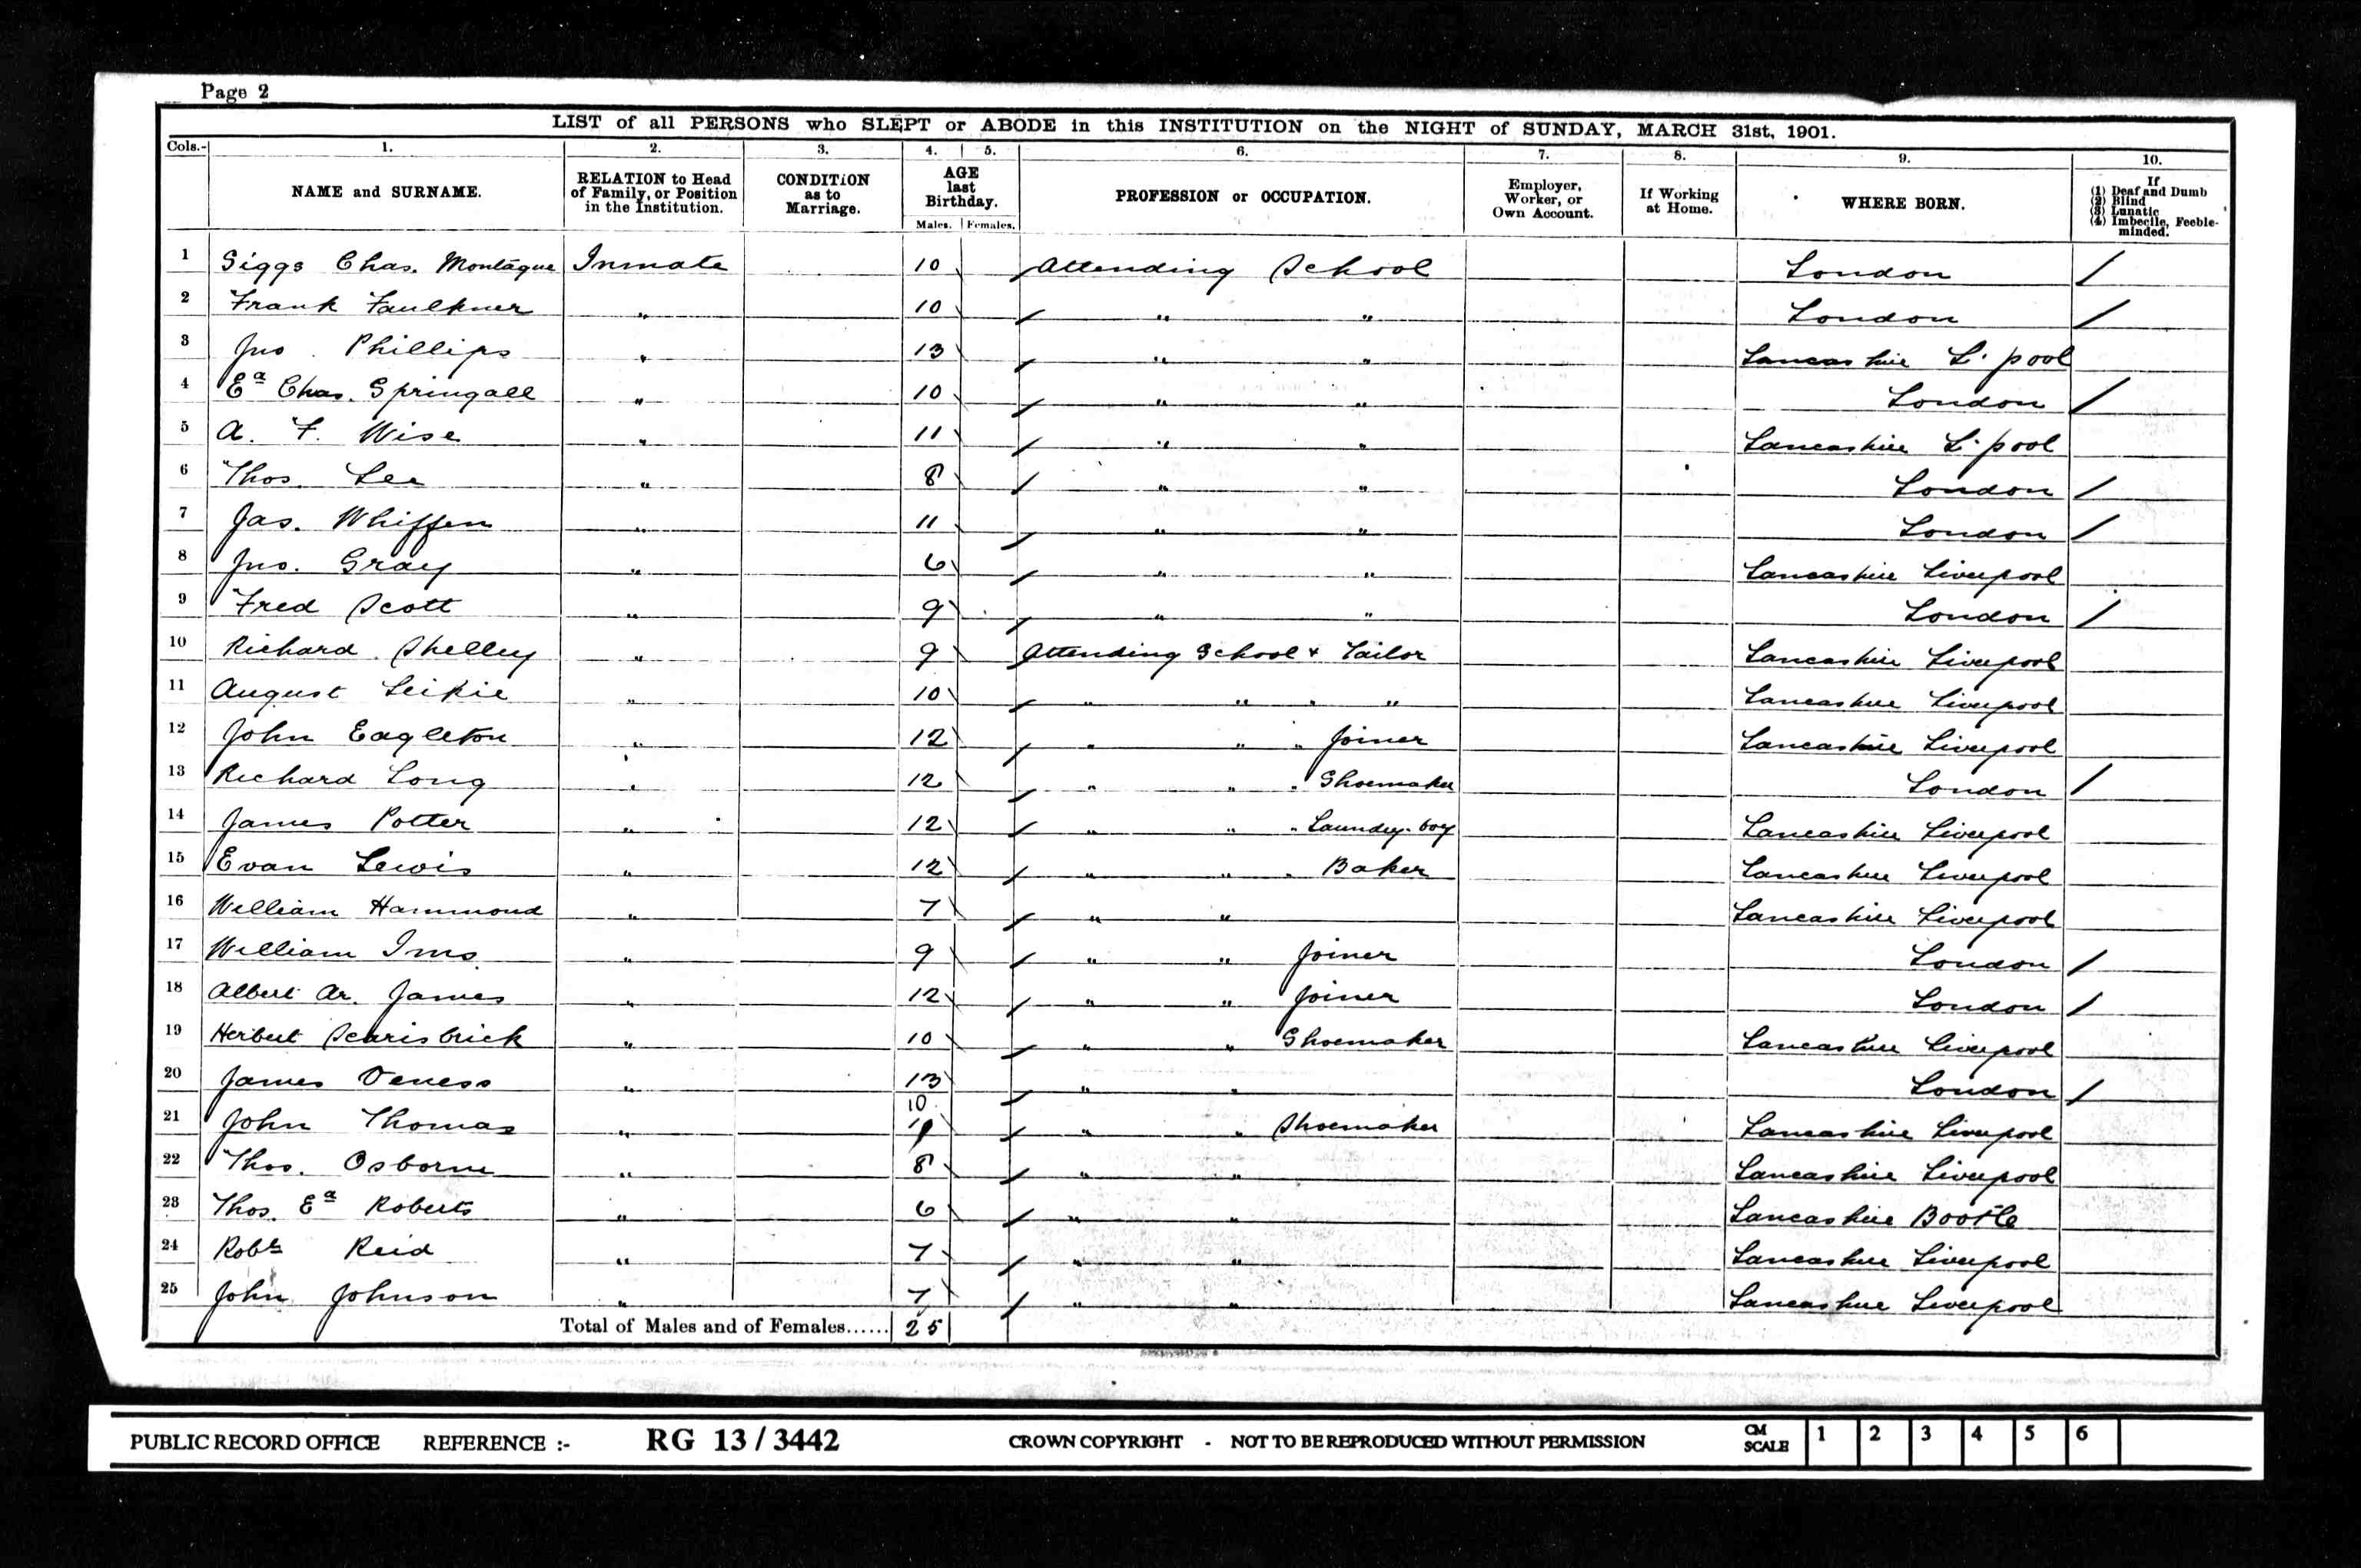 Page 2
LIST of all PERSONS who SLEPT or ABODE in this INSTITUTION on the NIGHT of SUNDAY, MARCH 31st, 1901.
Cols.- 1. 2. 3. 4. 5. 6. 7. 8. 9. 10.
NAME and SURNAME. RELATION to Head of Family, or Position in the Institution. CONDITION as to Marriage. AGE last Birthday. Males. Females. PROFESSION or OCCUPATION. Employer, Worker, or Own Account. If Working at Home. WHERE BORN. If (1) Deaf and Dumb (2) Blind (3) Lunatic (4) Imbecile, Feeble-minded.
1 Siggs Chas. Montague Inmate 10 Attending School London /
2 Frank Faulkner " 10 " " London /
3 Jno. Phillips " 13 " " Lancashire L'pool
4 Ea Chas. Springall " 10 " " London /
5 A. F. Wise " 11 " " Lancashire L'pool
6 Thos. Lee " 8 " " London /
7 Jas. Whiffen " 11 " " London /
8 Jno. Gray " 6 " " Lancashire Liverpool
9 Fred Scott " 9 " " London /
10 Richard Shelley " 9 Attending School + Tailor Lancashire Liverpool
11 August Leikie " 10 " " " " Lancashire Liverpool
12 John Eagleton " 12 " " " Joiner Lancashire Liverpool
13 Richard Long " 12 " " " Shoemaker London /
14 James Potter " 12 " " " Laundry-boy Lancashire Liverpool
15 Evan Lewis " 12 " " " Baker Lancashire Liverpool
16 William Hammond " 7 " " Lancashire Liverpool
17 William Ims " 9 " " Joiner London /
18 Albert Ar. James " 12 " " Joiner London /
19 Herbert Scarisbrick " 10 " " Shoemaker Lancashire Liverpool
20 James Veness " 13 " " London /
21 John Thomas " 10 " " Shoemaker Lancashire Liverpool
22 Thos. Osborne " 8 " " Lancashire Liverpool
23 Thos. Ea Roberts " 6 " " Lancashire Bootle
24 Robt Reid " 7 " " Lancashire Liverpool
25 John Johnson " 7 " " Lancashire Liverpool
Total of Males and of Females...... 25
PUBLIC RECORD OFFICE REFERENCE :- RG 13 / 3442 CROWN COPYRIGHT - NOT TO BE REPRODUCED WITHOUT PERMISSION CM SCALE 1 2 3 4 5 6